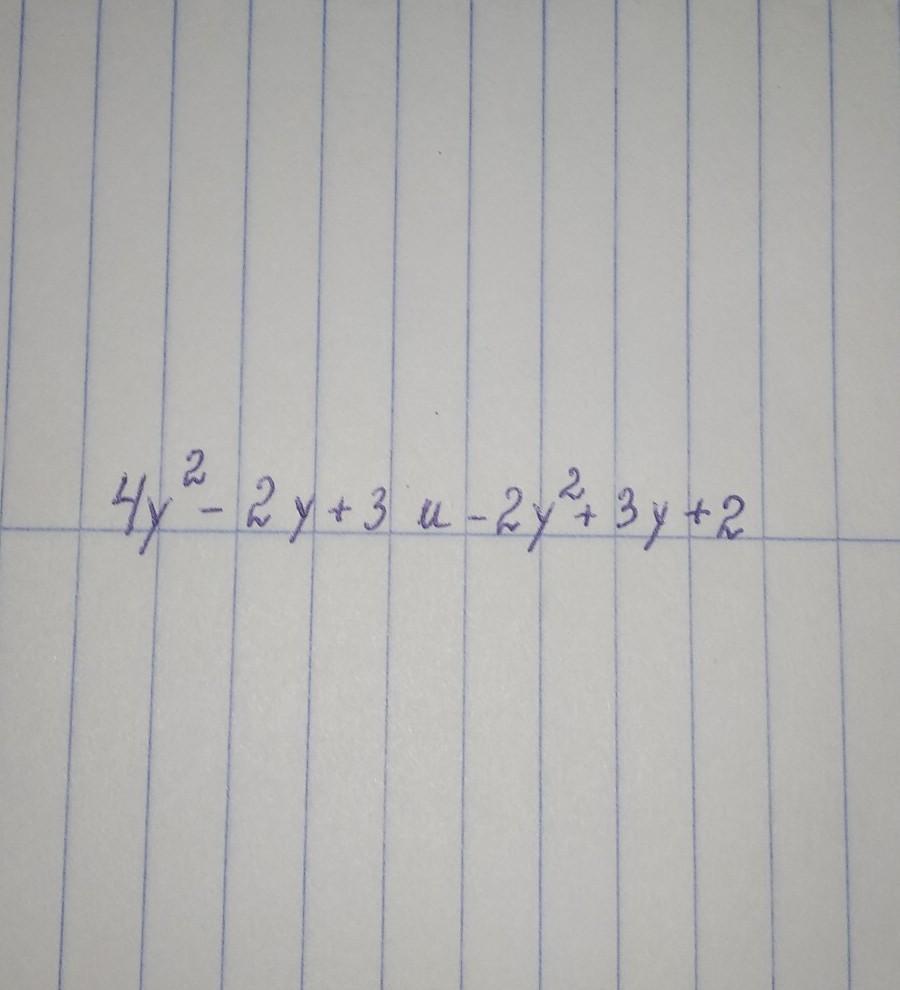 4y² - 2y + 3 и - 2y² + 3y + 2